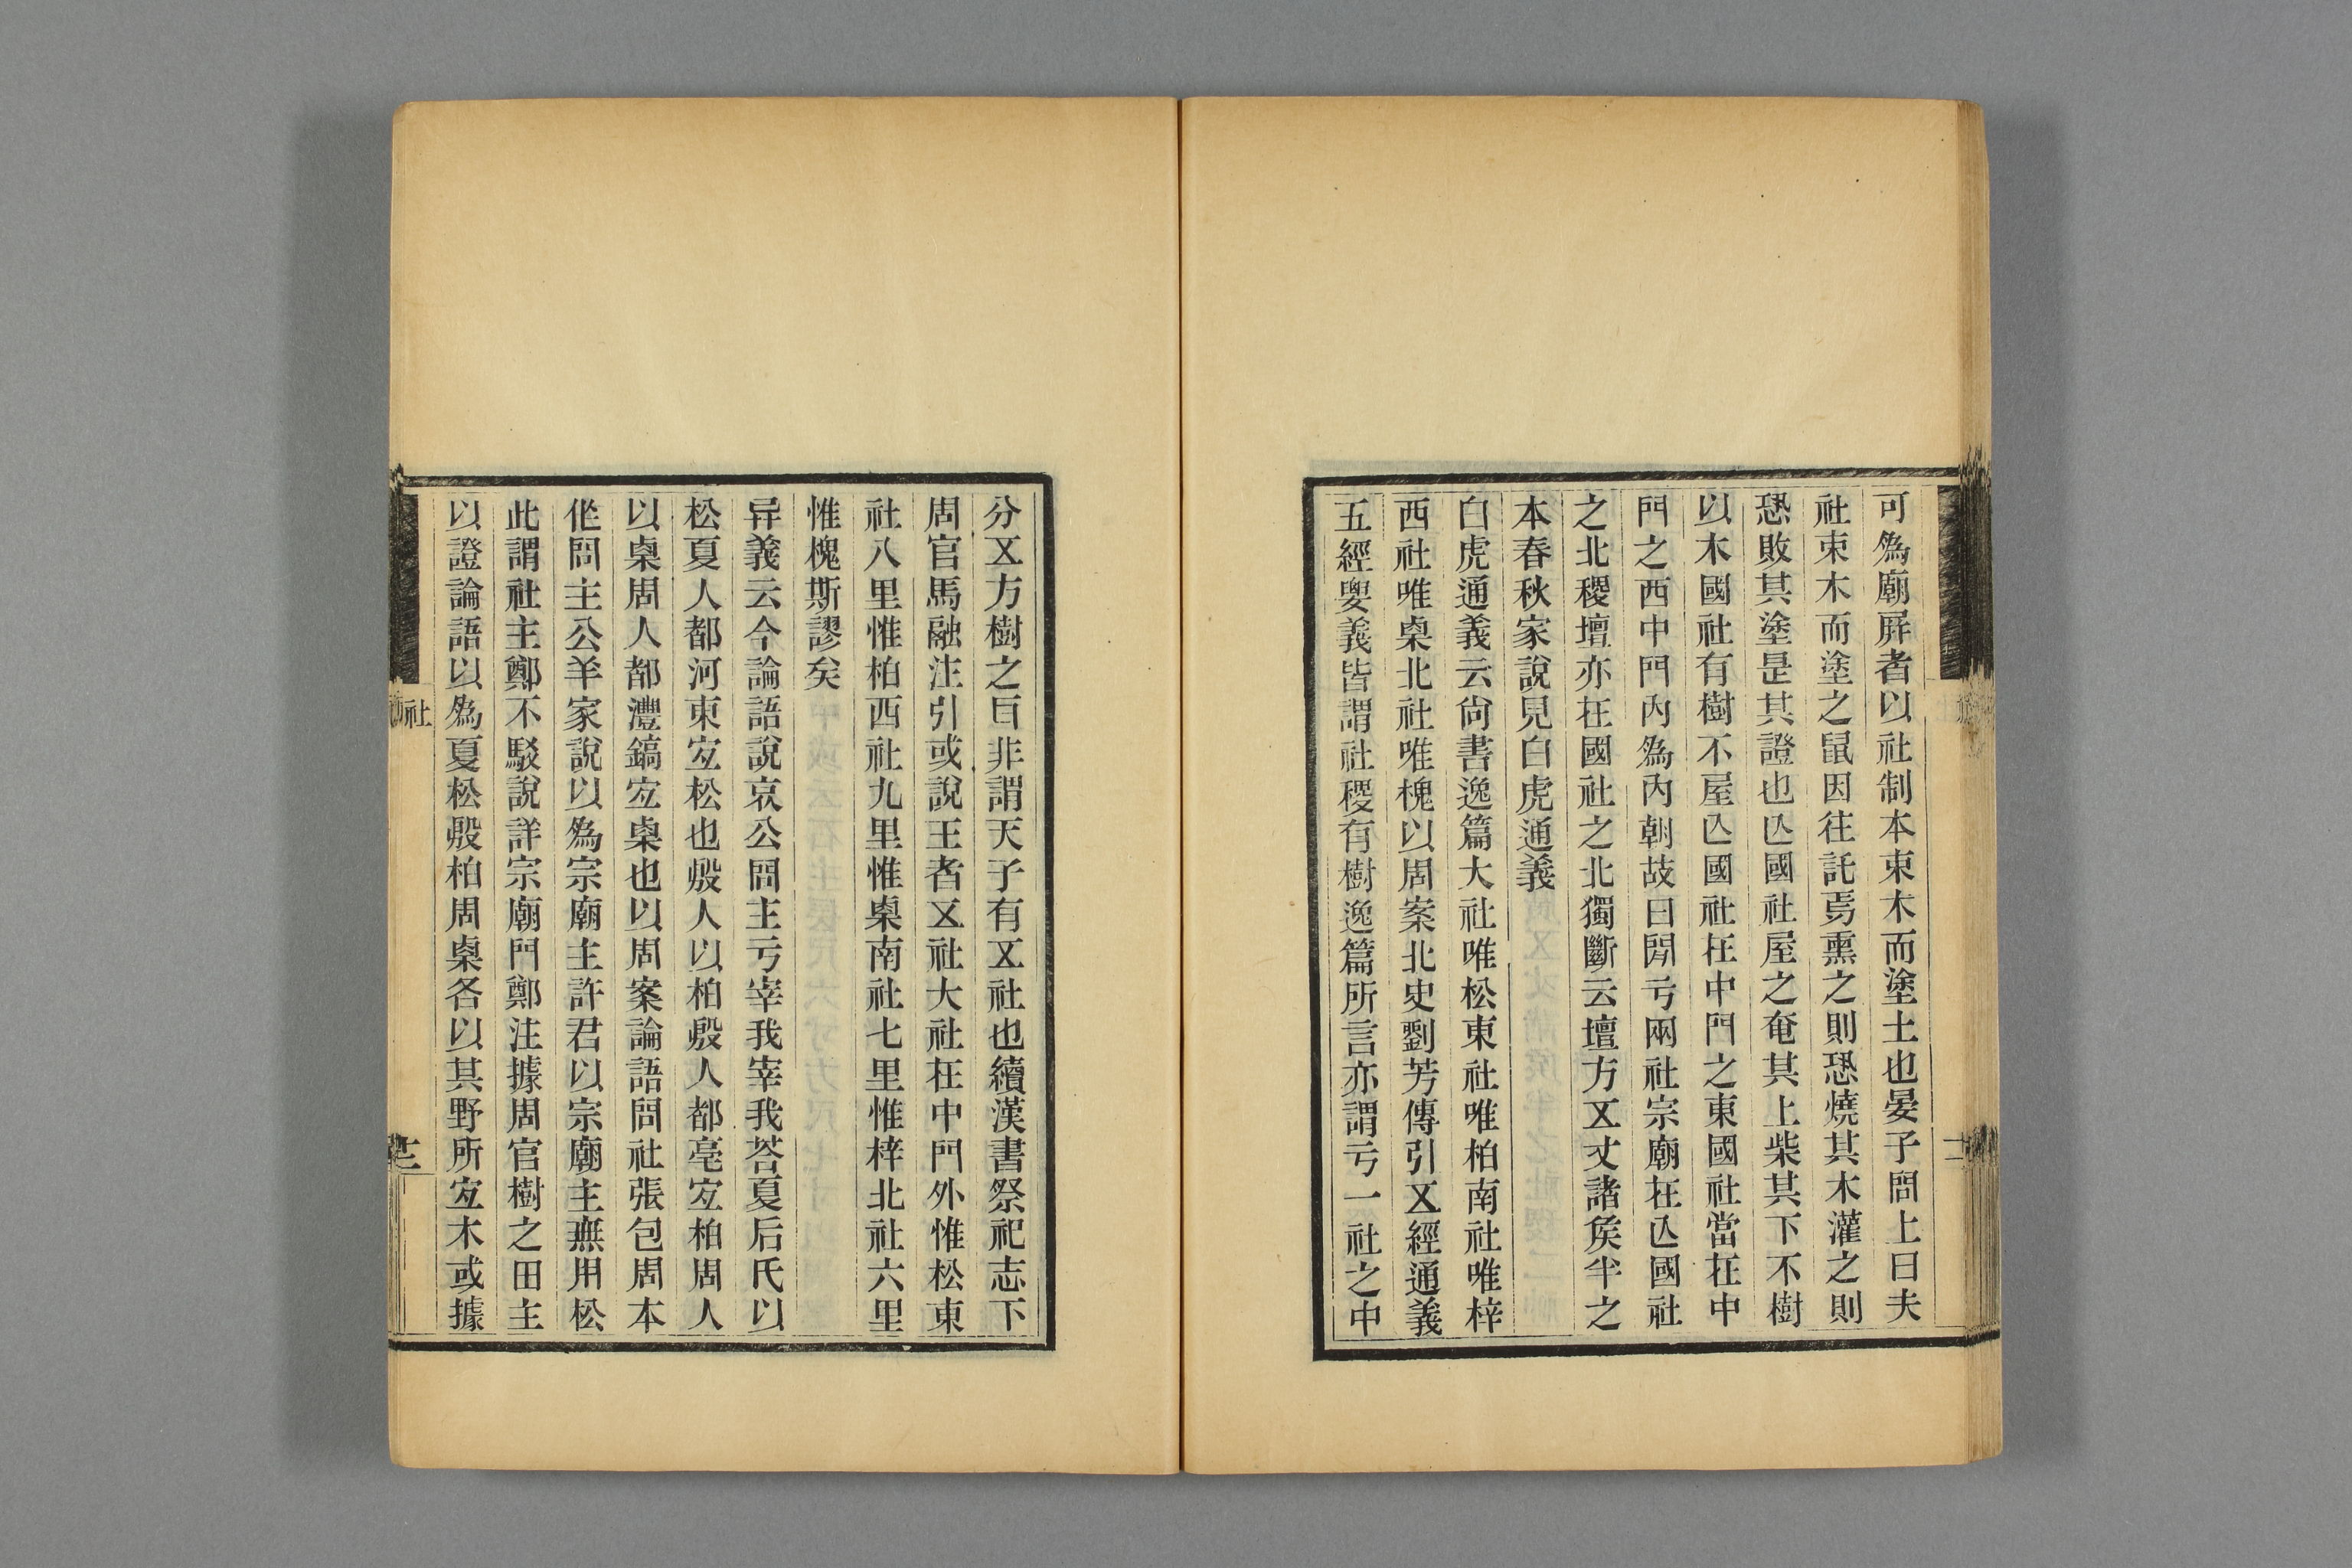 可爲廟屛者以社制本束木而塗土也晏子問上曰夫
社束木而塗之鼠因往託焉熏之則恐燒其木灌之則
恐敗其塗是其證也亾國社屋之奄其上柴其下不樹
以木國社有樹不屋亾國社在中門之東國社當在中
門之西中門內爲內朝故曰閒亏兩社宗廟在亾國社
之北稷壇亦在國社之北獨斷云壇方㐅丈諸矦半之
本春秋家說見白虎通義
白虎通義云尙書逸篇大社唯松東社唯柏南社唯梓
西社唯㮚北社唯槐以周案北史劉芳傳引㐅經通義
五經要義皆謂社稷有樹逸篇所言亦謂亏一社之中
分㐅方樹之㠯非謂天子有㐅社也續漢書祭祀志下
周官馬融注引或說王者㐅社大社在中門外惟松東
社八里惟柏西社九里惟㮚南社七里惟梓北社六里
惟槐斯謬矣
异義云今論語說哀公問主亏宰我宰我荅夏后氏以
松夏人都河東宐松也殷人以柏殷人都亳宐柏周人
以㮚周人都灃鎬宐㮚也以周案論語問社張包周本
作問主公羊家說以爲宗廟主許君以宗廟主無用松
此謂社主鄭不駁說詳宗廟門鄭注據周官樹之田主
以證論語以爲夏松殷柏周㮚各以其野所宐木或據
社